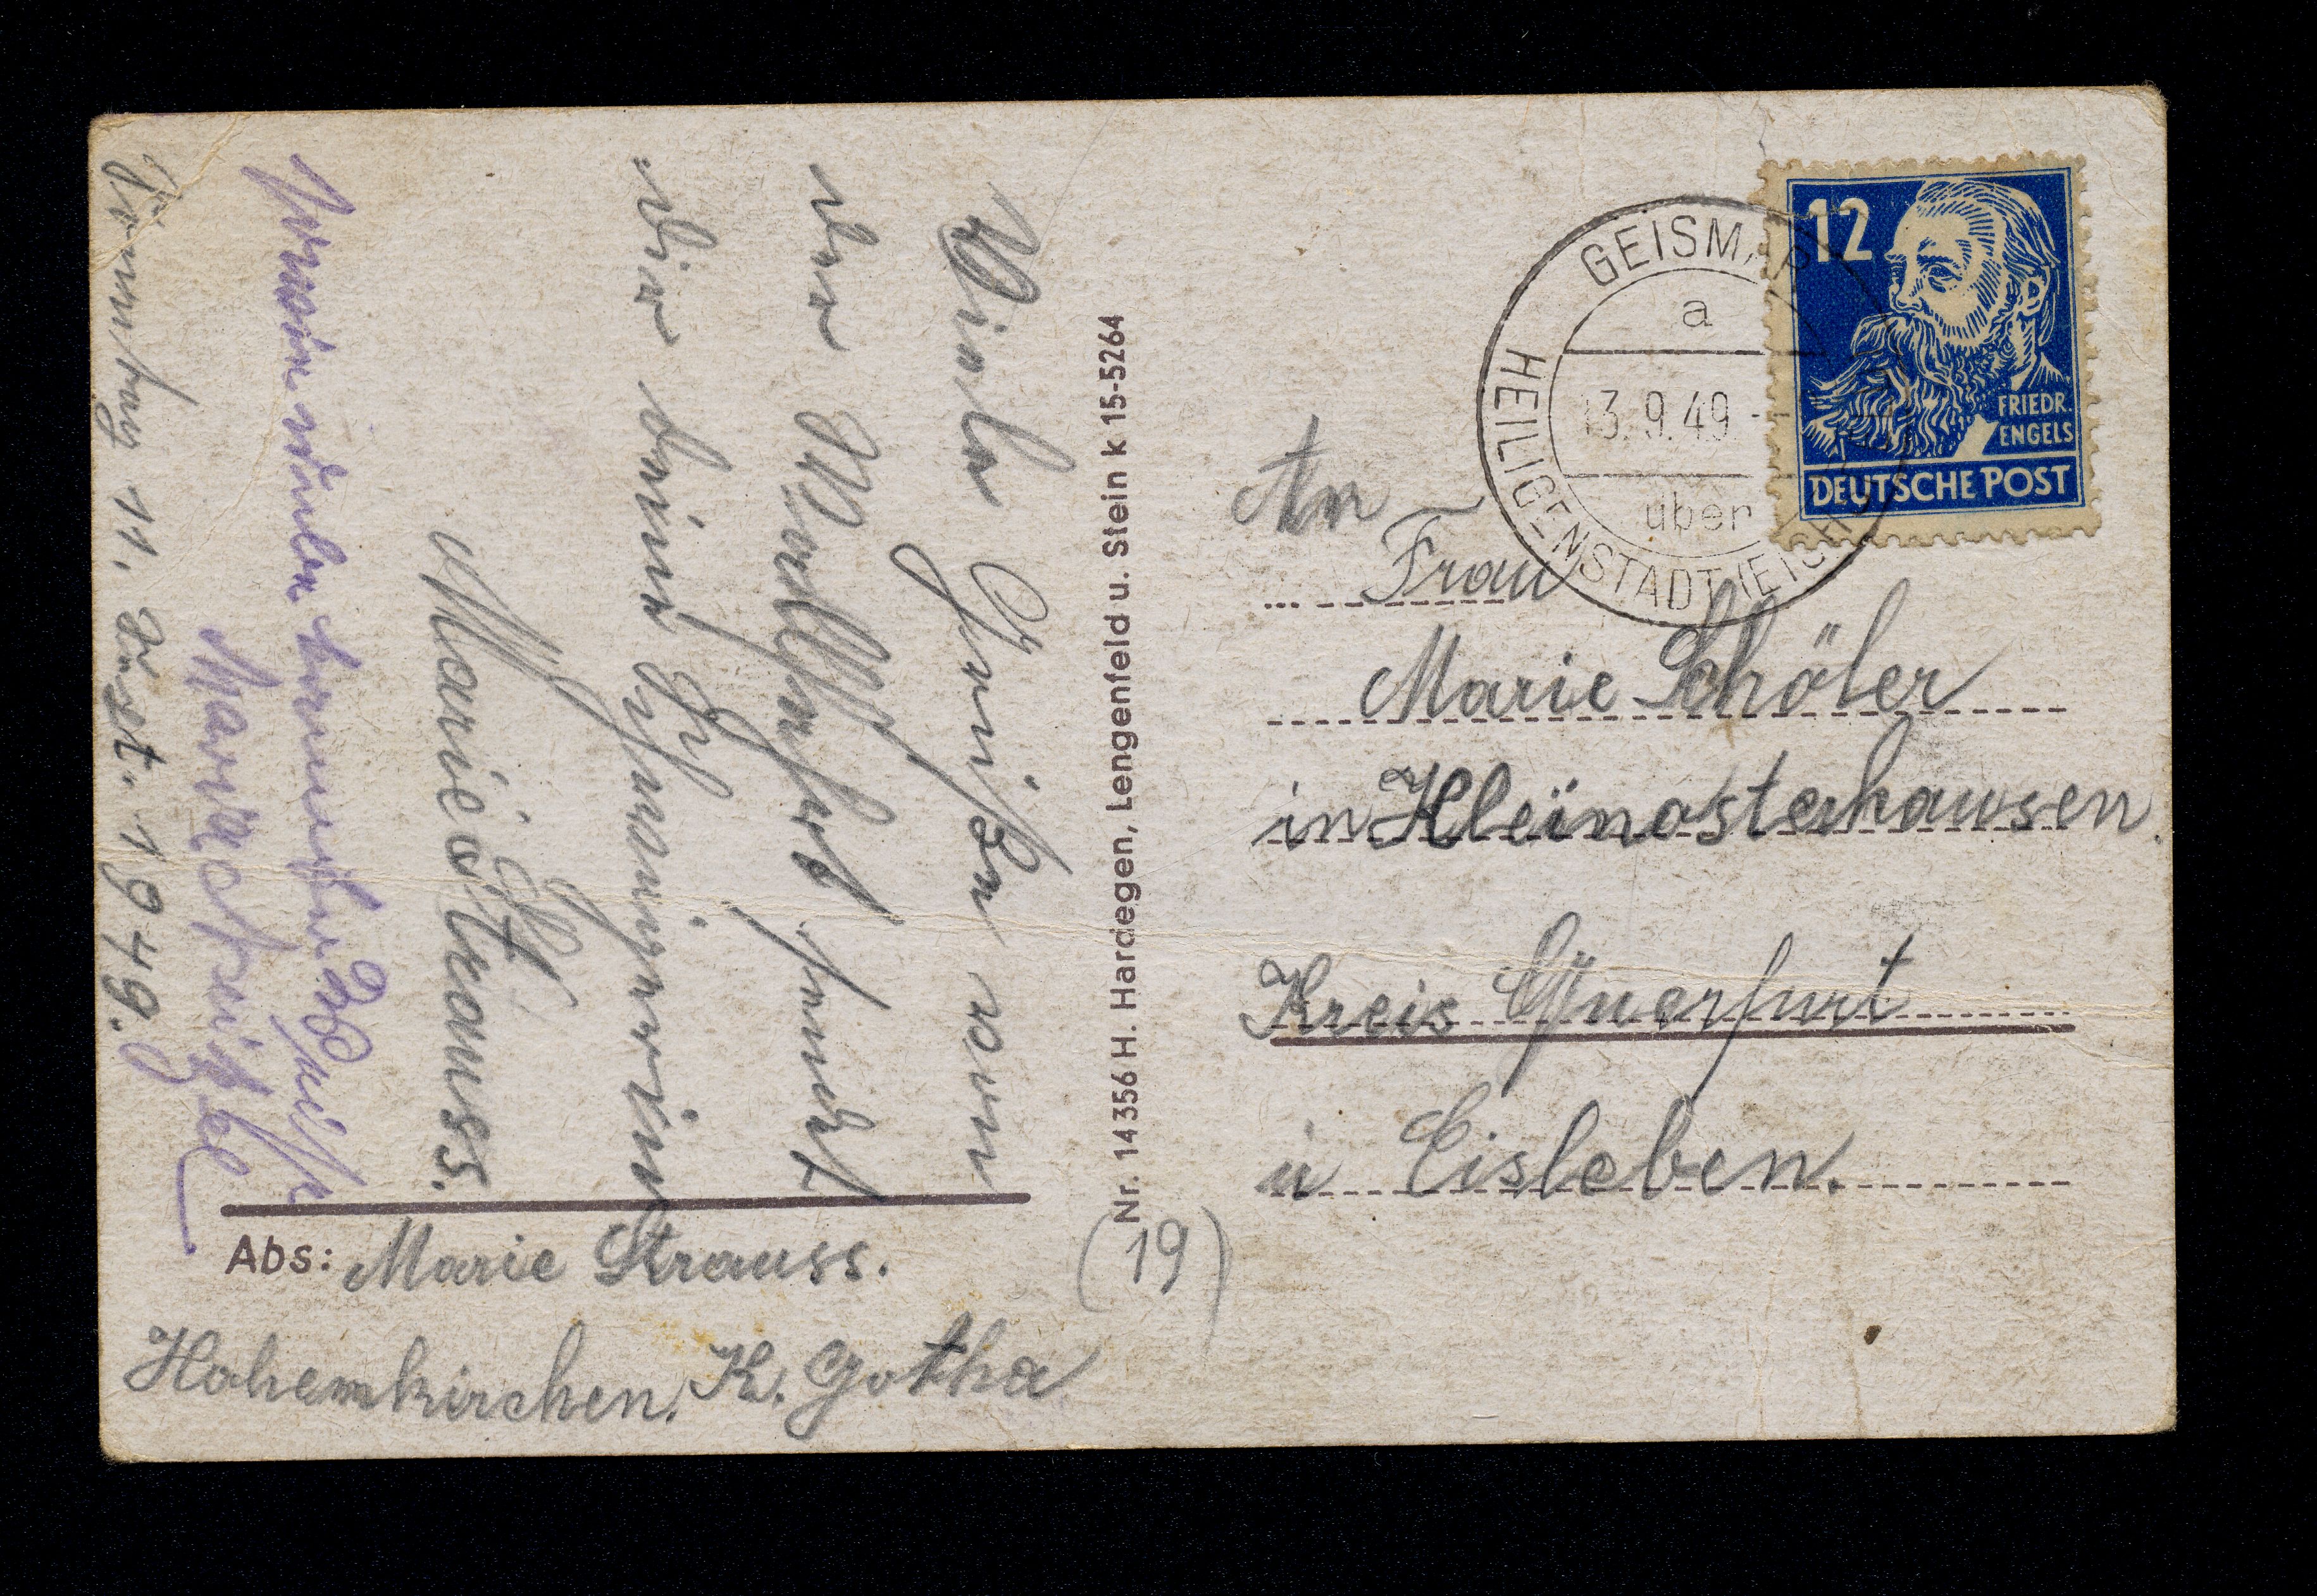 Viele Grüßen von
der Wallfahrt sendet
dir deine Schwägerin
Marie Strauss.
Marie
Sonntag 11. Sept. 1949.
Abs: Marie Strauss.
Hohenkirchen, K. Gotha
Nr. 14356 H. Hardegen, Lengenfeld u. Stein k 15-5264
(19)
GEISMAR
a
13.9.49
über
HEILIGENSTADT (EICHSF)
12
FRIEDR.
ENGELS
DEUTSCHE POST
An
Frau
Marie Schöler
in Kleinosterhausen
Kreis Querfurt
ü Eisleben.